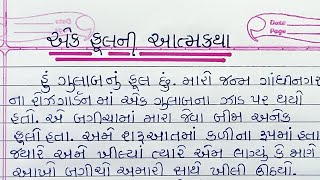 એક ફૂલની આત્મકથા
Date
Page
હું ગુલાબનું ફૂલ છું. મારો જન્મ ગાંધીનગર
ના રોઝગાર્ડનમાં એક ગુલાબના ઝાડ પર થયો
હતો. એ બગીચામાં મારા જેવા બીજા અનેક
ફૂલો હતા. અમે શરૂઆતમાં કળીના રૂપમાં હતા
જ્યારે અમે ખીલ્યાં ત્યારે એમ લાગ્યું કે માણે
આખો બગીચો અમારી સાથે ખીલી ઉઠયો.